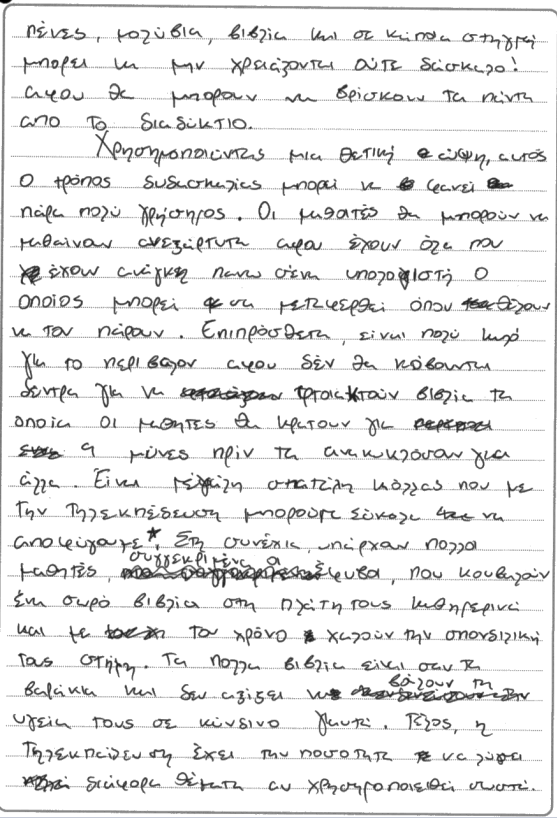 πένες, μολύβια, βιβλία και σε κάποια στηγμή
μπορεί να μην χρειάζονται ούτε δάσκαλο!
αφου θα μπορουν να βρίσκουν τα πάντα
απο το διαδύκτιο.
Χρησημοποιώντας μια θετική όψη, αυτός
ο τρόπος δυδασκαλίας μπορεί να φανεί
πάρα πολύ χρήσημος. Οι μαθατές θα μπορούν να
μαθαίνουν ανεξάρτυτα αφου έχουν όλα που
έχουν ανάγκη πανω σένα υπολογιστή ο
οποίος μπορεί να μεταφερθεί όπου θέλουν
να τον πάρουν. Επιπρόσθετα, είναι πολύ καλό
για το περιβαλον αφου δέν θα κόβονται
δεντρα για να φτοιακτούν βιβλία τα
οποία οι μαθητες θα κρατουν για
9 μύνες πρίν τα ανακυκλόσουν για
άλλα. Είναι μεγάλη σπατάλη κόλλας που με
την Τηλεκπέδευση μπορούμε εύκολα να
αποφύγουμε*. Στη συνέχια, υπάρχουν πολλοι
μαθητές, συγγεκριμένα α έφυβοι, που κουβαλούν
ένα σωρό βιβλία στη πλάτη τους καθημερινά
και με τον χρόνο χαλούν την σπονδιλική
τους στήμη. Τα πολλα βιβλία είναι σαν τα
βαράκια και δεν αξιξει να βάλουν τη
υγεία τους σε κίνδινο γιαυτό. Τέλος, η
Τηλεκπαίδευση έχει την ποσοτητα να λύσει
διάφορα θέματα αν χρησημοποιειθεί σωστά.